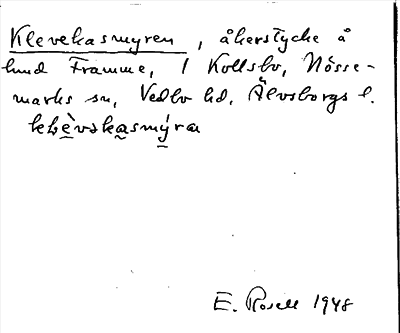 Klevekasmyren, åkerstycke å
lund Framme, 1 Kollsbo, Nösse-
marks sn, Vedbo hd, Älvsborgs l.
klèvekasmýra
E. Rosell 1948